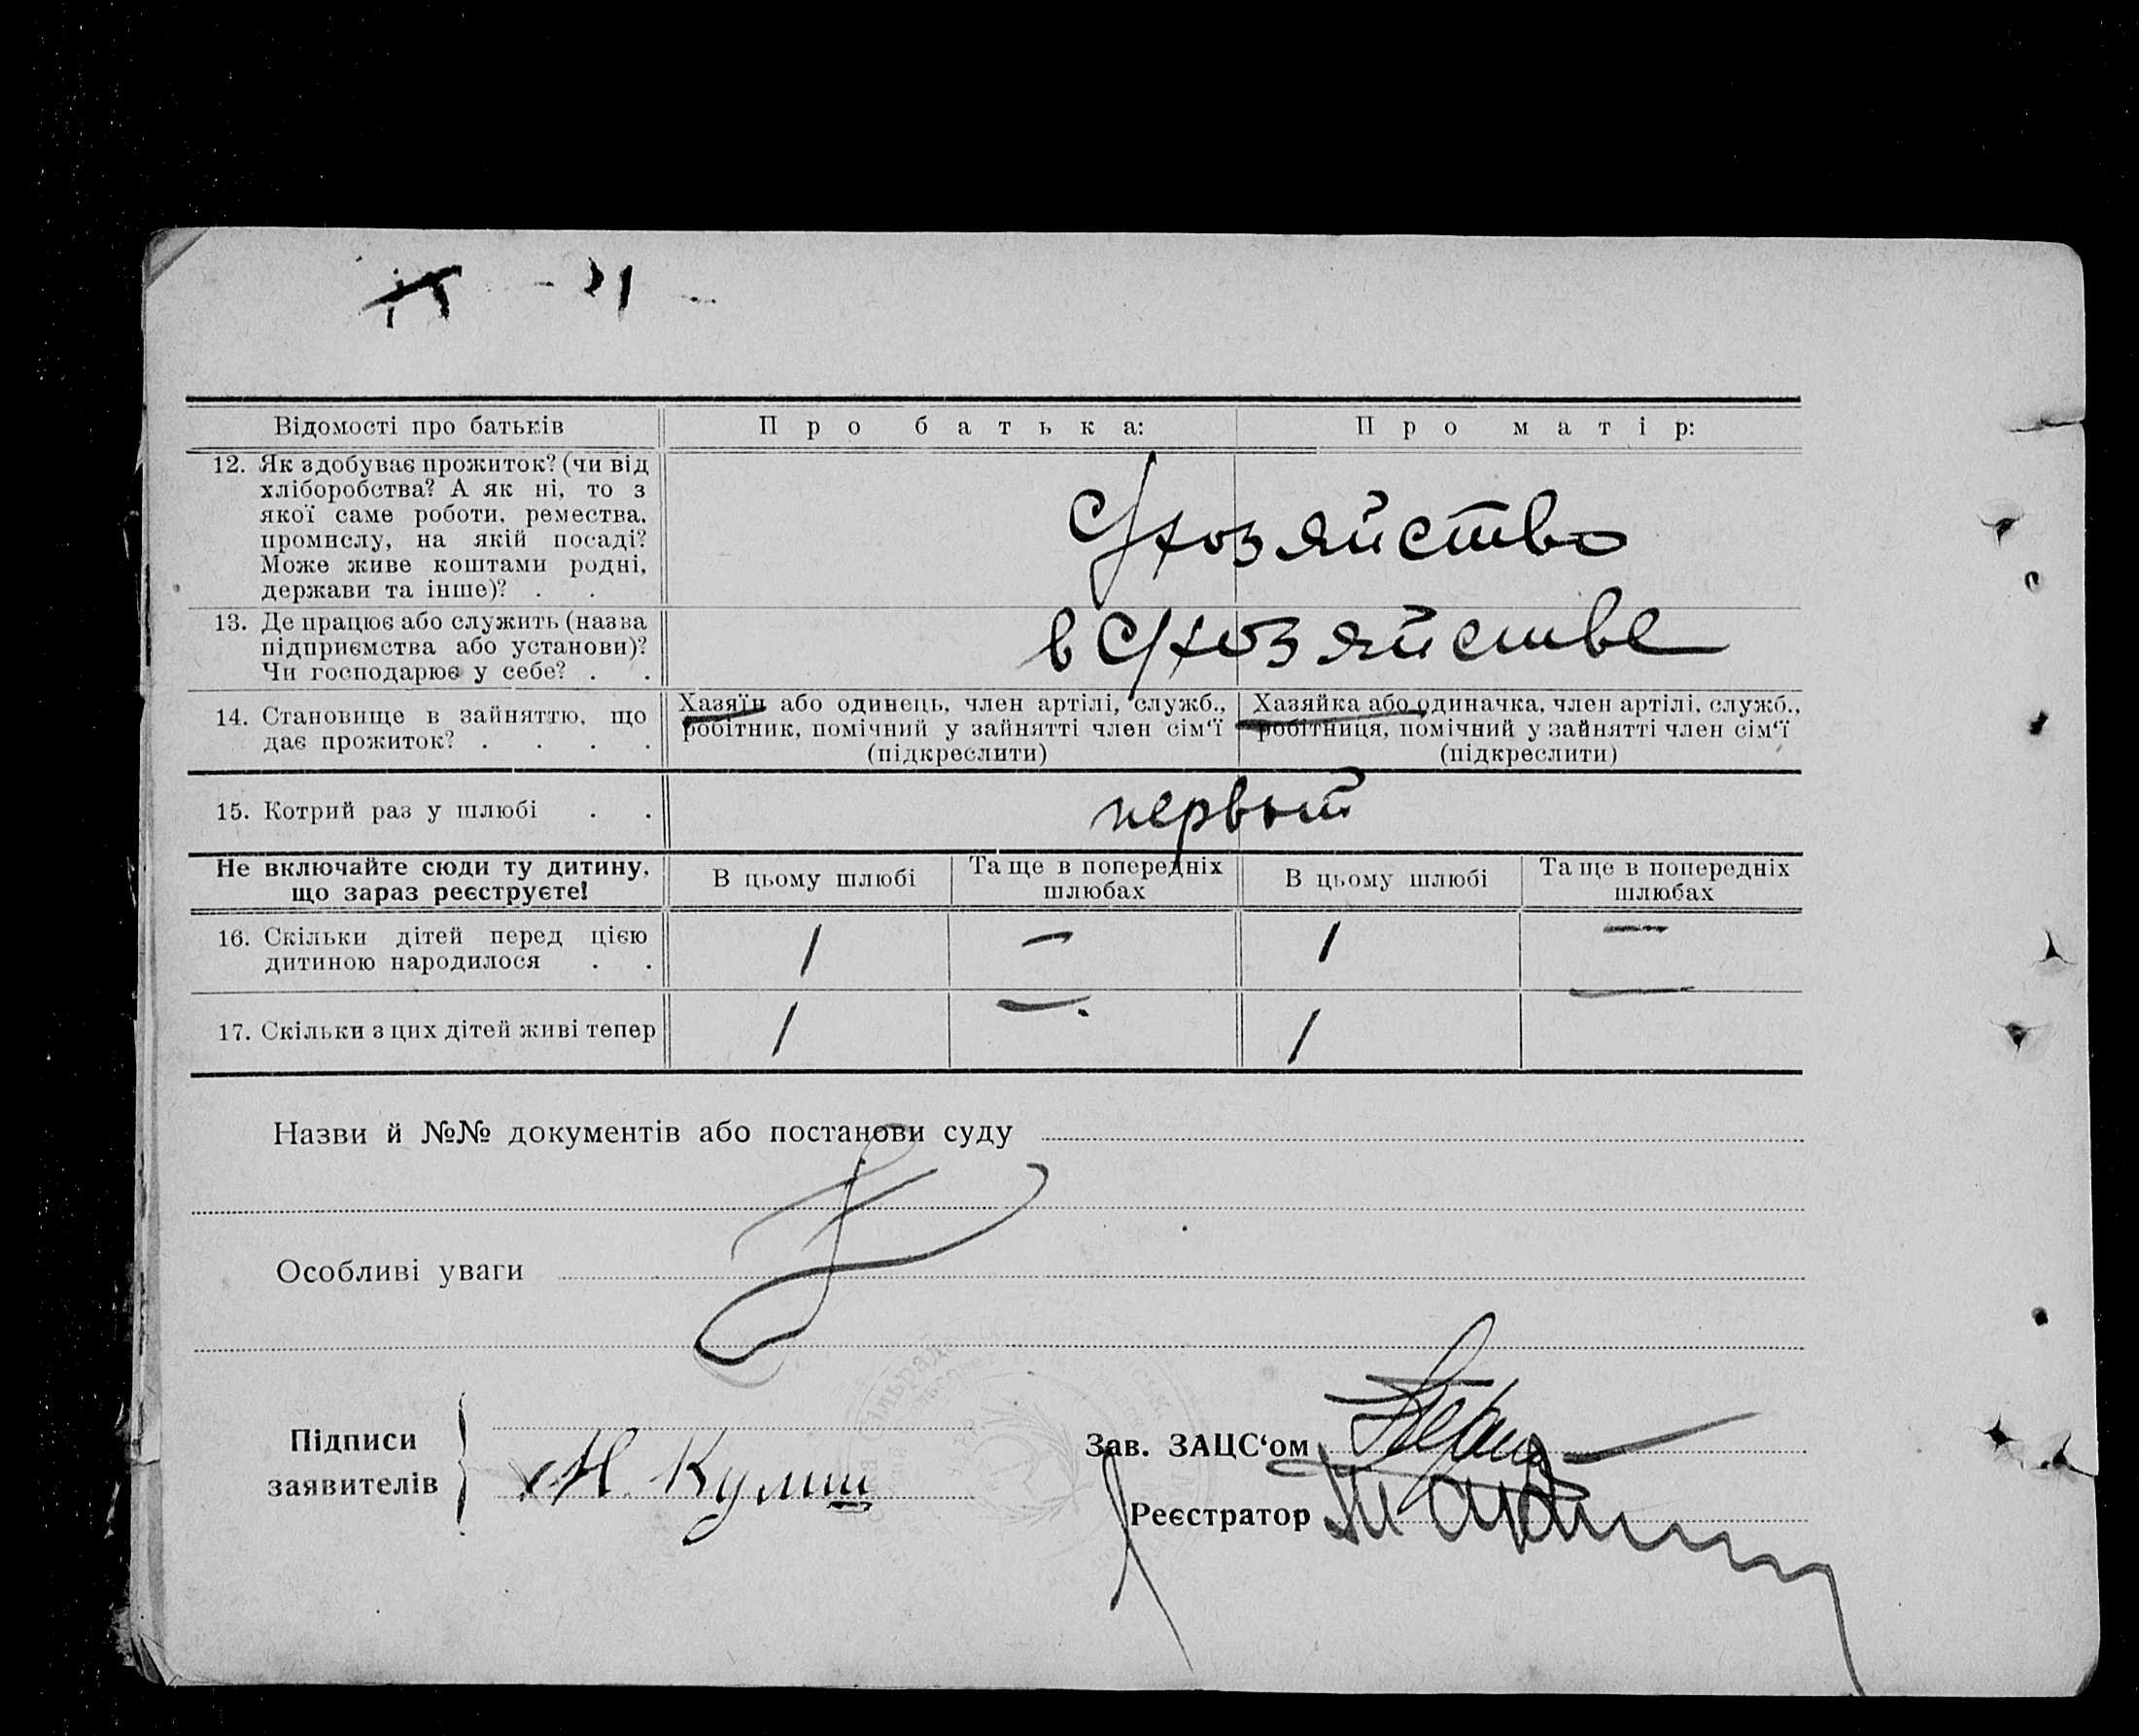 Відомості про батьків
П р о б а т ь к а:
П р о м а т і р:
12. Як здобуває прожиток? (чи від
хліборобства? А як ні, то з
якої саме роботи, ремества,
промислу, на якій посаді?
Може живе коштами родні,
держави та інше)? . .
С/хозяйство
13. Де працює або служить (назва
підприємства або установи)?
Чи господарює у себе? . .
в С/хозяйстве
14. Становище в зайняттю, що
дає прожиток? . . . .
Хазяїн або одинець, член артілі, служб.,
робітник, помічний у зайнятті член сім‘ї
(підкреслити)
Хазяйка або одиначка, член артілі, служб.,
робітниця, помічний у зайнятті член сім‘ї
(підкреслити)
15. Котрий раз у шлюбі . .
первый
Не включайте сюди ту дитину,
що зараз реєструєте!
В цьому шлюбі
Та ще в попередніх
шлюбах
В цьому шлюбі
Та ще в попередніх
шлюбах
16. Скільки дітей перед цією
дитиною народилося . .
1 — 1 —
17. Скільки з цих дітей живі тепер
1 — 1 —
Назви й №№ документів або постанови суду
Особливі уваги
Підписи
заявителів
Н. Кулиш
Зав. ЗАЦС‘ом
Реєстратор